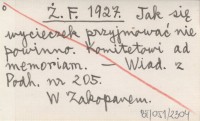 Ż. F. 1927. Jak się
wycieczek przyjmować nie
powinno. Komitetowi ad
memoriam. — Wiad. z
Podh. nr 205.
W Zakopanem.